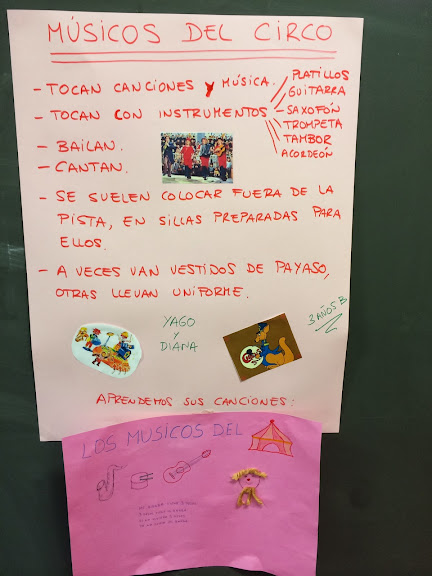 MÚSICOS DEL CIRCO
- TOCAN CANCIONES Y MÚSICA.
- TOCAN CON INSTRUMENTOS
PLATILLOS
GUITARRA
SAXOFÓN
TROMPETA
TAMBOR
ACORDEÓN
- BAILAN.
- CANTAN.
- SE SUELEN COLOCAR FUERA DE LA
PISTA, EN SILLAS PREPARADAS PARA
ELLOS.
- A VECES VAN VESTIDOS DE PAYASO,
OTRAS LLEVAN UNIFORME.
YAGO
Y
DIANA
3 AÑOS B
APRENDEMOS SUS CANCIONES:
LOS MUSICOS DEL